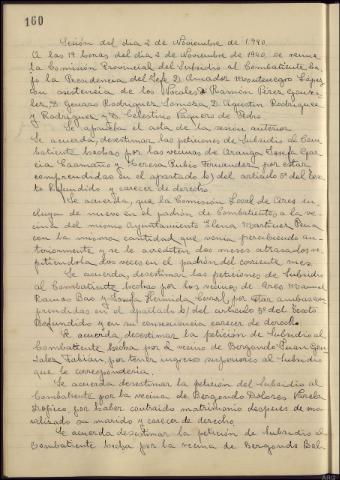 160
Sesión del dia 2 de Noviembre de 1940.
A las 19 horas del dia 2 de Noviembre de 1940, se reune
la Comisión Provincial del Subsidio al Combatiente ba-
jo la Presidencia del Jefe D. Amador Montenegro López
con asistencia de los Vocales D. Ramón Pérez Gonzá-
lez, D. Genaro Rodriguez Somoza, D. Agustin Rodriguez
y Rodriguez y D. Celestino Vaquero de Pedro.
Se aprueba el acta de la sesion anterior.
Se acuerda, desestimar las peticiones de Subsidio al Com-
batiente hechas por las vecinas de Aranga Josefa Gar-
cia Caamaño y Teresa Pubio Fernandez, por estar
comprendidas en el apartado b) del articulo 5º del Tex-
to Refundido y carecer de derecho.
Se acuerda, que la Comisión Local de Ares in-
cluya de nuevo en el padrón de Combatientes a la ve-
cina del mismo Ayuntamiento Elena Martinez Pena
con la misma cantidad que venia percibiendo an-
teriormente y se le acrediten dos meses atrasados re-
pitiendola dos veces en el padrón del corriente mes.
Se acuerda, desestimar las peticiones de Subsidio
al Combatiente hechas por los vecinos de Ares Manuel
Ramos Bao y Josefa Hermida por estar ambos com-
prendidas en el apartado b) del articulo 5º del Texto
Refundido y en su consecuencia carecer de derecho.
Se acuerda, desestimar la petición de Subsidio al
Combatiente hecha por el vecino de Bergondo Juan Gon-
zalez Fabian, por tener ingreso superiores al Subsidio
que le corresponderia.
Se acuerda desestimar la petición del Subsidio al
Combatiente por la vecina de Bergondo Dolores Varela
por haber contraido matrimonio despues de mo-
vilizado su marido y carecer de derecho.
Se acuerda desestimar la petición de Subsidio al
Combatiente hecha por la vecina de Bergondo Bal-